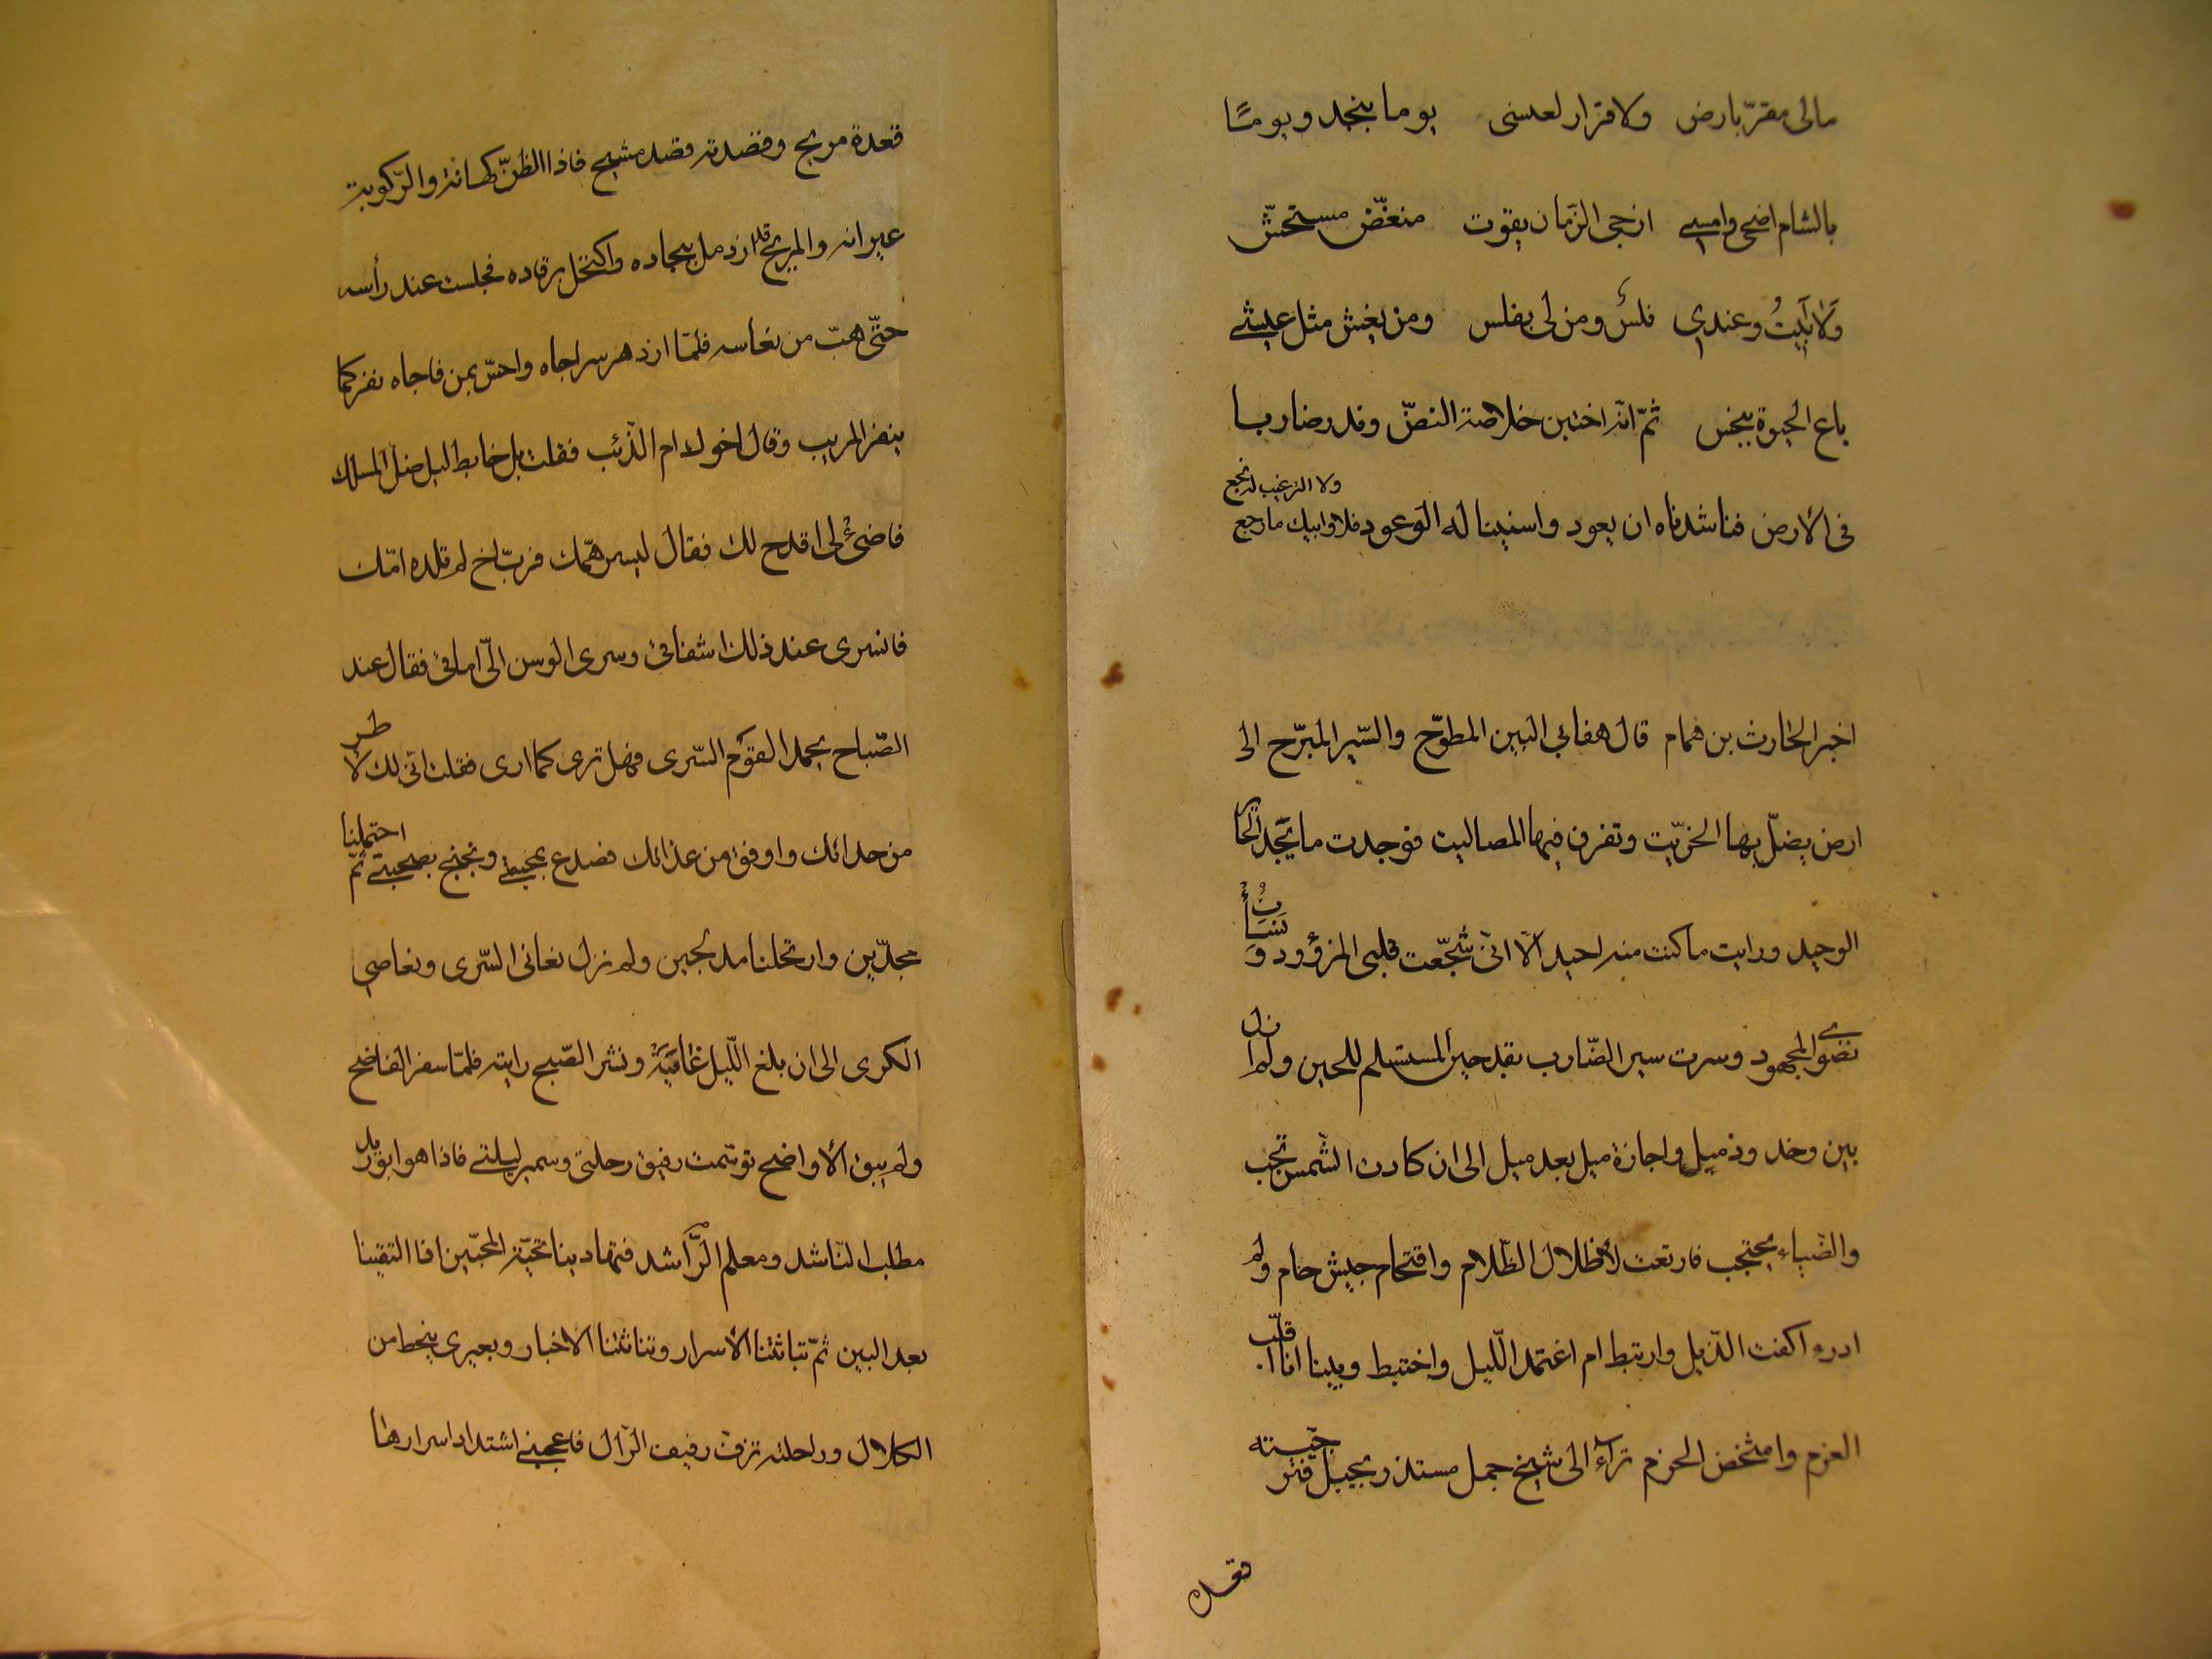 مالى مقرّ بارض ولا قرار لعنسى يوما بنجد ويومًا
بالشام اضحى وامسى ازجى الزمان بقوت منغّص مستخسّ
ولا أبيتُ وعندي فلسٌ ومن لى بفلس ومن يعش مثل عيشى
باع الحيوة ببخس ثمّ انّه اختبن خلاصة النضّ وندر ضاربا
فى الأرض فناشدناه ان يعود واسنينا له الوعود فلا وابيك ما رجع
ولا الترغيب له نجع
اخبر الحارث بن همام قال هفا بي البين المطوّح والسّير المبرّح الى
ارض يضلّ بها الخرّيت وتفرق فيها المصاليت فوجدت ما يجد الحائر
الوحيد ورايت ما كنت منه احيد الّا انّى شجّعت قلبى المزؤود و نسأت
نضوى المجهود وسرت سير الضّارب بقدحين المستسلم للحين ولم ازل
بين وخد وذميل واجازة ميل بعد ميل الى ان كادت الشّمس تجب
والضّياء يحتجب فارتعت لأظلال الظّلام واقتحام جيش حام ولم
ادر ء اكفت الذّيل وارتبط ام اعتمد اللّيل واختبط وبينا انا اقلّب
العزم وامتخض الحزم تراءَ الى شبح جمل مستذر بجبل فترجّيته
قعدة مريح وقصدته قصد مشيح فاذا الظنّ كهانة والرّكوبة
عيرانه والمريح قد ازدمل ببجاده واكتحل برقاده فجلست عند رأسه
حتّى هبّ من نعاسه فلمّا ازدهر سراجاه واحسّ بمن فاجاه نفر كما
ينفر المريب وقال اخوك ام الذّئب فقلت بل خابط ليل ضلّ المسلك
فاضئ لى اقدح لك فقال ليسر همّك فربّ اخ لم تلده امّك
فانسرى عند ذلك اشفاقى وسرى الوسن الىّ اماقى فقال عند
الصّباح يحمد القوم السّرى فهل ترى كما ارى فقلت انّى لك لأطوع
من حدائك واوفق من غذائك فصدع بمحبّتى وبجبج بصحبتى ثمّ احتملنا
مجدّين وارتحلنا مدلجين ولم نزل نعانى السّرى ونعاصي
الكرى الى ان بلغ اللّيل غايَتَهُ ونشر الصّبح رايته فلمّا سفر الفاضح
ولم يبق الّا واضح توسّمت رفيق رحلتى وسمير ليلتى فاذا هو ابو زيد
مطلب النّاشد ومعلم الرّاشد فتهادينا تحيّة المحبّين اذا التقينا
بعد البين ثمّ تباثثنا الأسرار وتناثثنا الأخبار وبعيرى ينحط من
الكلال وراحلته تزفّ زفيف الرّال فاعجبنى اشتداد اسرارها